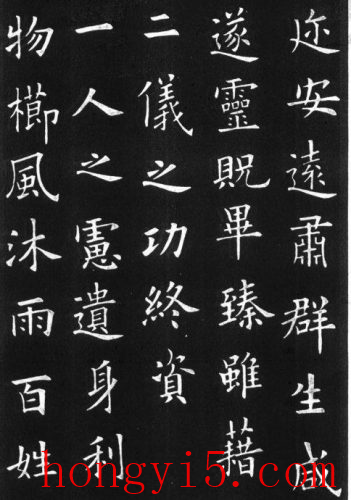 迩安遠肅群生咸
遂靈貺畢臻雖藉
二儀之功終資
一人之慮遺身利
物櫛風沐雨百姓
hongyi5.com